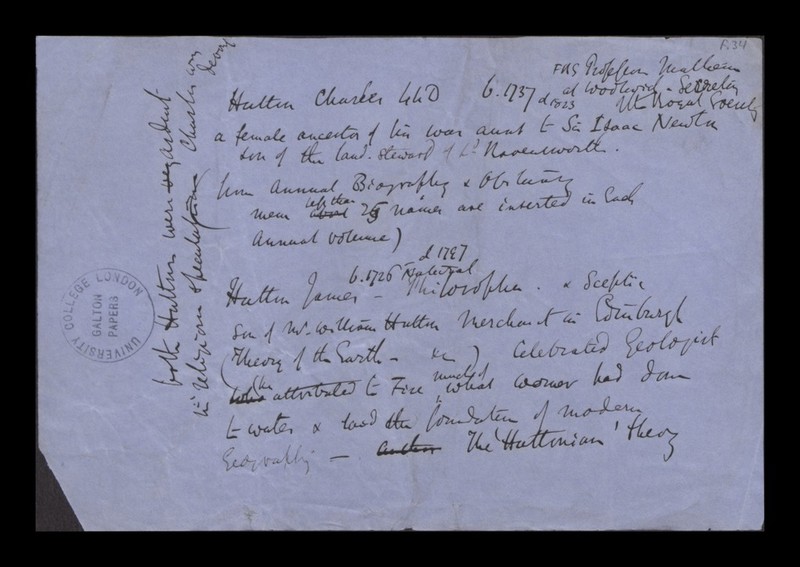 F. 34
FRS Professor Mathem
Hutton Charles LLD b. 1737 at Woolwich - Secretary
d 1823 Royal Society
a female ancestor of his was aunt to Sir Isaac Newton
son of the land-steward of Ld Ravensworth.
from Annual Biography & Obituary
mem less than about 25 names are inserted in each
annual volume)
d 1797
b. 1726 Natural
Hutton James - Philosopher. & Sceptic
son of Mr. William Hutton Merchant in Edinburgh
(Theory of the Earth - &c) Celebrated Geologist
who attributed to Fire much of what Werner had done
to water & laid the foundation of modern
Geography - author The 'Huttonian' theory
both Huttons were
in religious speculation Charles was
UNIVERSITY COLLEGE LONDON
GALTON
PAPERS